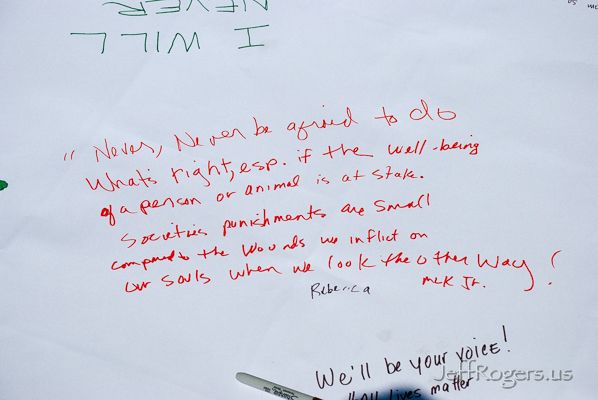 NEVER
I WILL
" Never, Never be afraid to do
What's right, esp. if the well-being
of a person or animal is at stake.
Societies punishments are small
compared to the wounds we inflict on
our souls when we look the other way!
Rebecca
MLK Jr.
We'll be your voice!
lives matter
JeffRogers.us